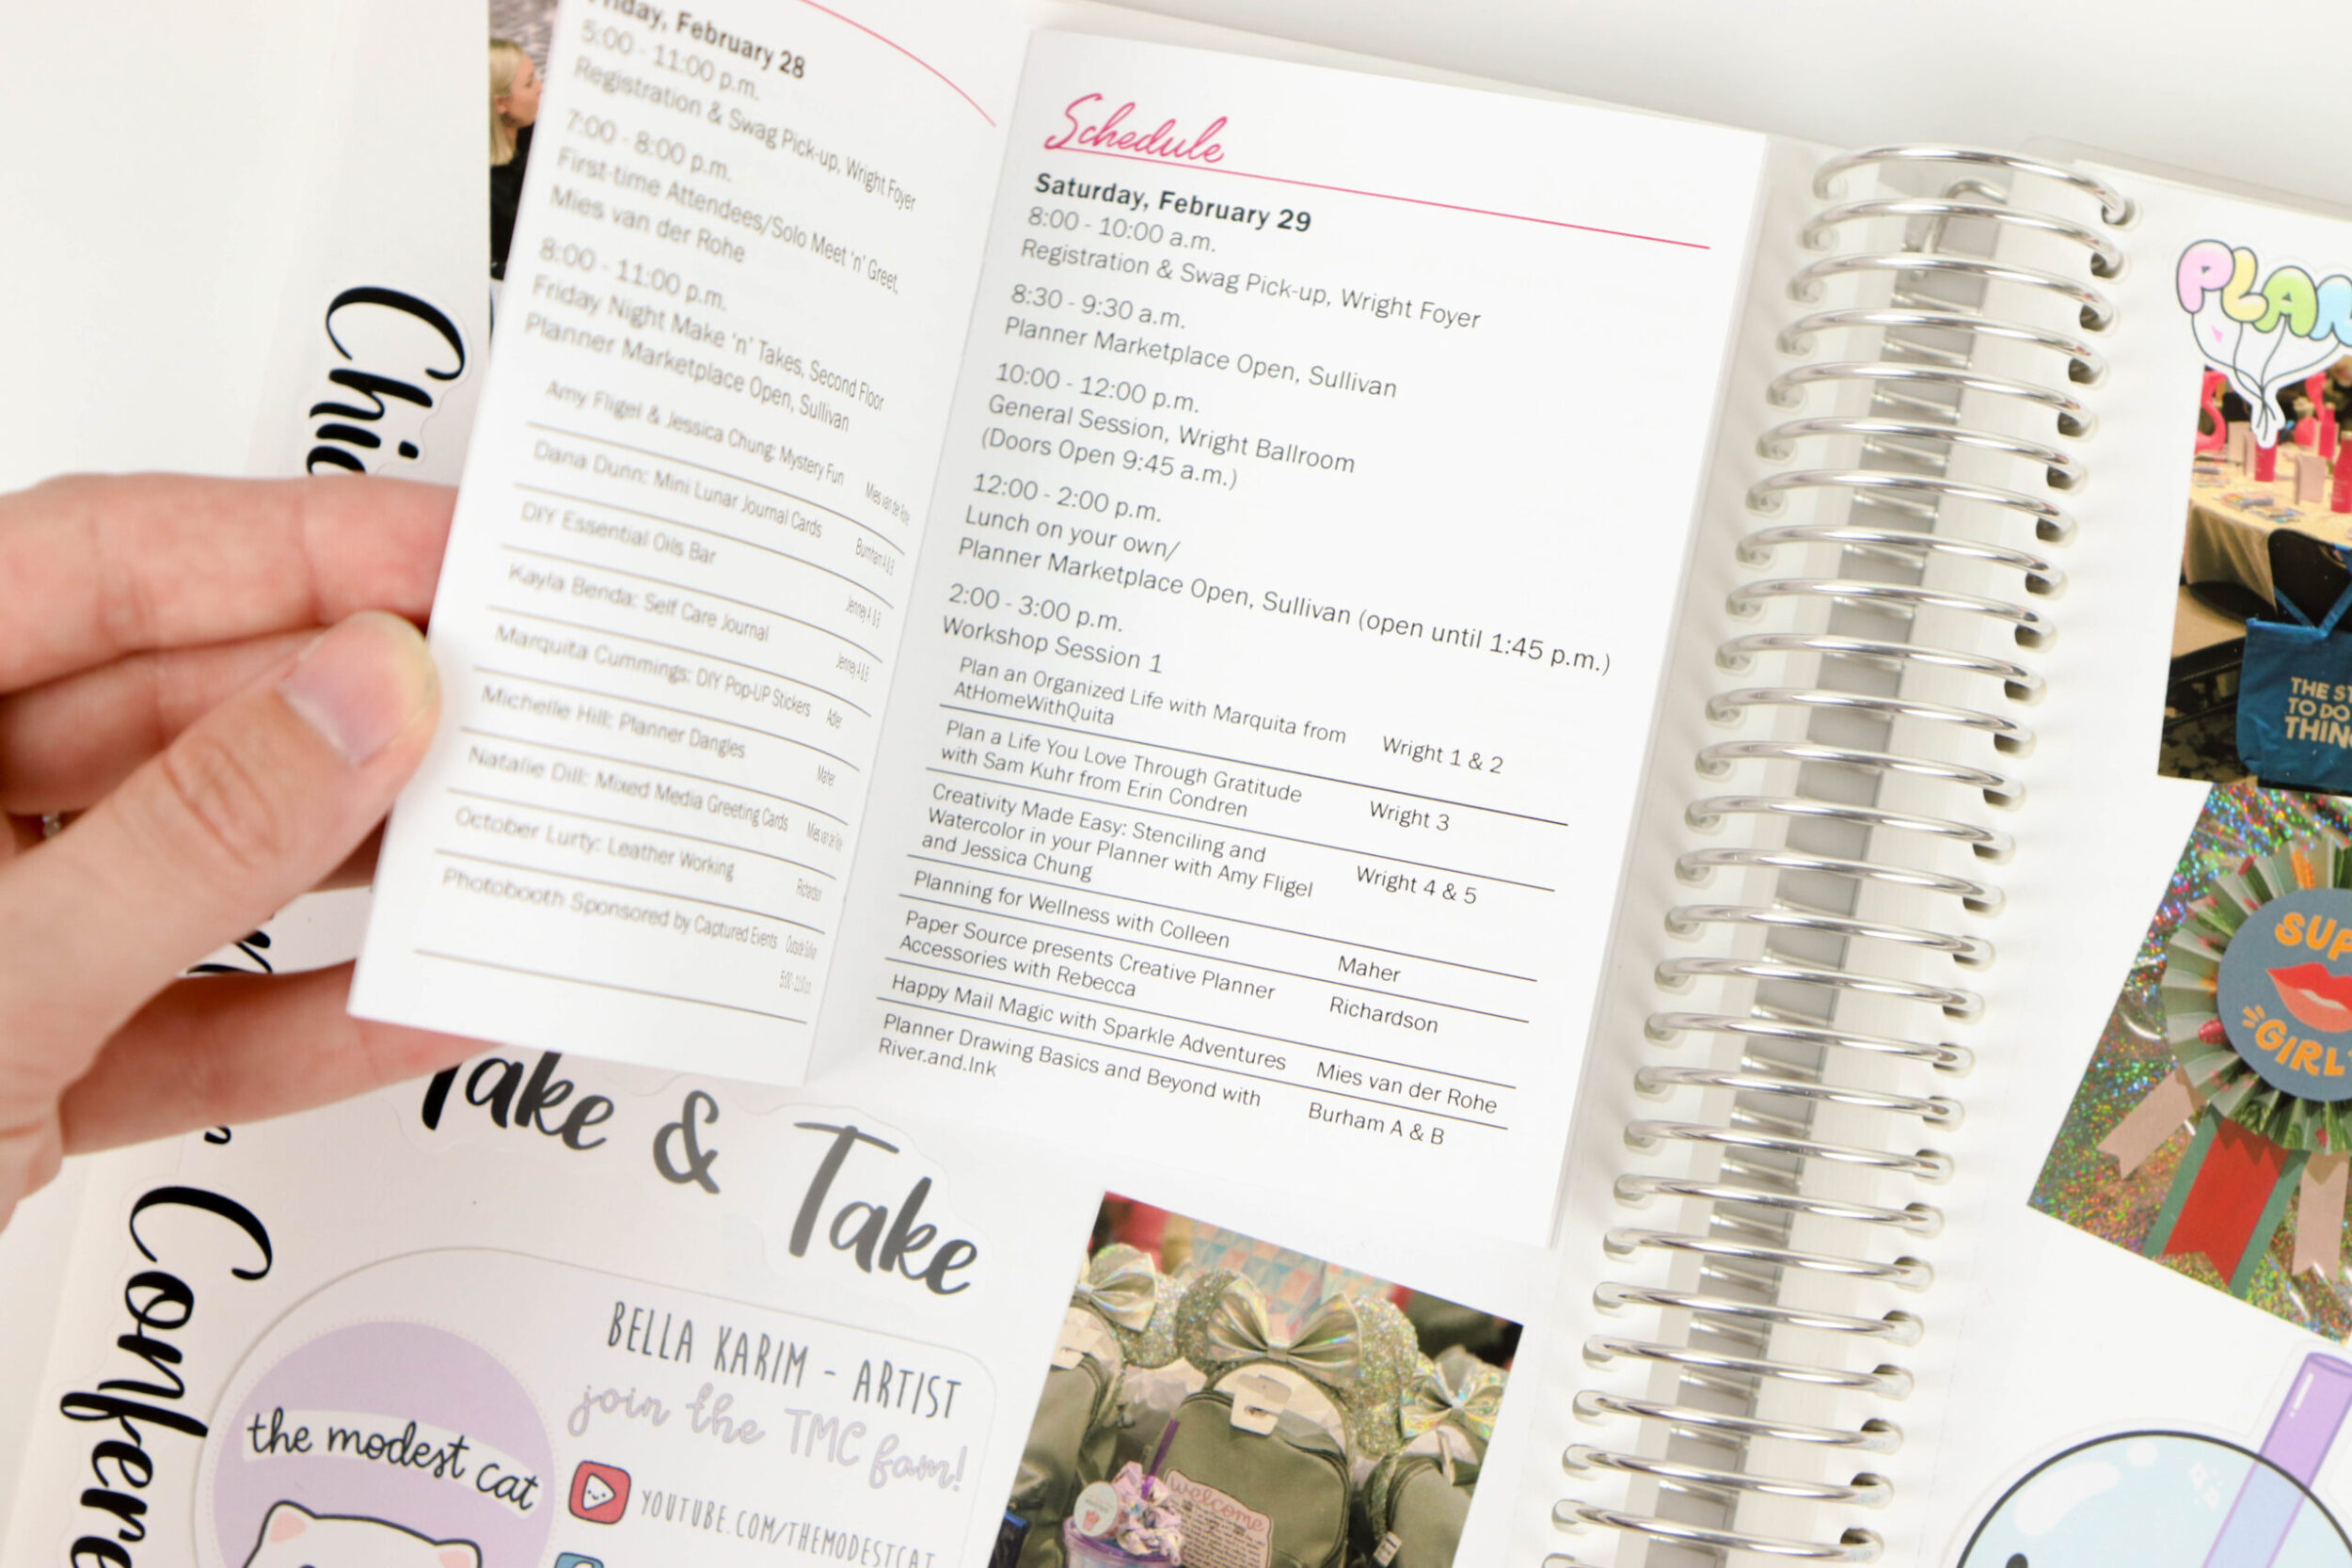 Friday, February 28
5:00 - 11:00 p.m.
Registration & Swag Pick-up, Wright Foyer
7:00 - 8:00 p.m.
First-time Attendees/Solo Meet 'n' Greet,
Mies van der Rohe
8:00 - 11:00 p.m.
Friday Night Make 'n' Takes, Second Floor
Planner Marketplace Open, Sullivan
Amy Fligel & Jessica Chung: Mystery Fun Mies van der Rohe
Dana Dunn: Mini Lunar Journal Cards Burnham A & B
DIY Essential Oils Bar Jenney A & B
Kayla Benda: Self Care Journal Jenney A & B
Marquita Cummings: DIY Pop-UP Stickers Adler
Michelle Hill: Planner Dangles Maher
Natalie Dill: Mixed Media Greeting Cards Mies van der Rohe
October Lurty: Leather Working Richardson
Photobooth Sponsored by Captured Events Outside
Schedule
Saturday, February 29
8:00 - 10:00 a.m.
Registration & Swag Pick-up, Wright Foyer
8:30 - 9:30 a.m.
Planner Marketplace Open, Sullivan
10:00 - 12:00 p.m.
General Session, Wright Ballroom
(Doors Open 9:45 a.m.)
12:00 - 2:00 p.m.
Lunch on your own/
Planner Marketplace Open, Sullivan (open until 1:45 p.m.)
2:00 - 3:00 p.m.
Workshop Session 1
Plan an Organized Life with Marquita from
AtHomeWithQuita Wright 1 & 2
Plan a Life You Love Through Gratitude
with Sam Kuhr from Erin Condren Wright 3
Creativity Made Easy: Stenciling and
Watercolor in your Planner with Amy Fligel
and Jessica Chung Wright 4 & 5
Planning for Wellness with Colleen Maher
Paper Source presents Creative Planner
Accessories with Rebecca Richardson
Happy Mail Magic with Sparkle Adventures Mies van der Rohe
Planner Drawing Basics and Beyond with
River.and.Ink Burham A & B
Chic
Confere
Take & Take
BELLA KARIM - ARTIST
join the TMC fam!
YOUTUBE.COM/THEMODESTCAT
the modest cat
welcome
PLAN
THE ST
TO DO
THIN
SUP
GIRL